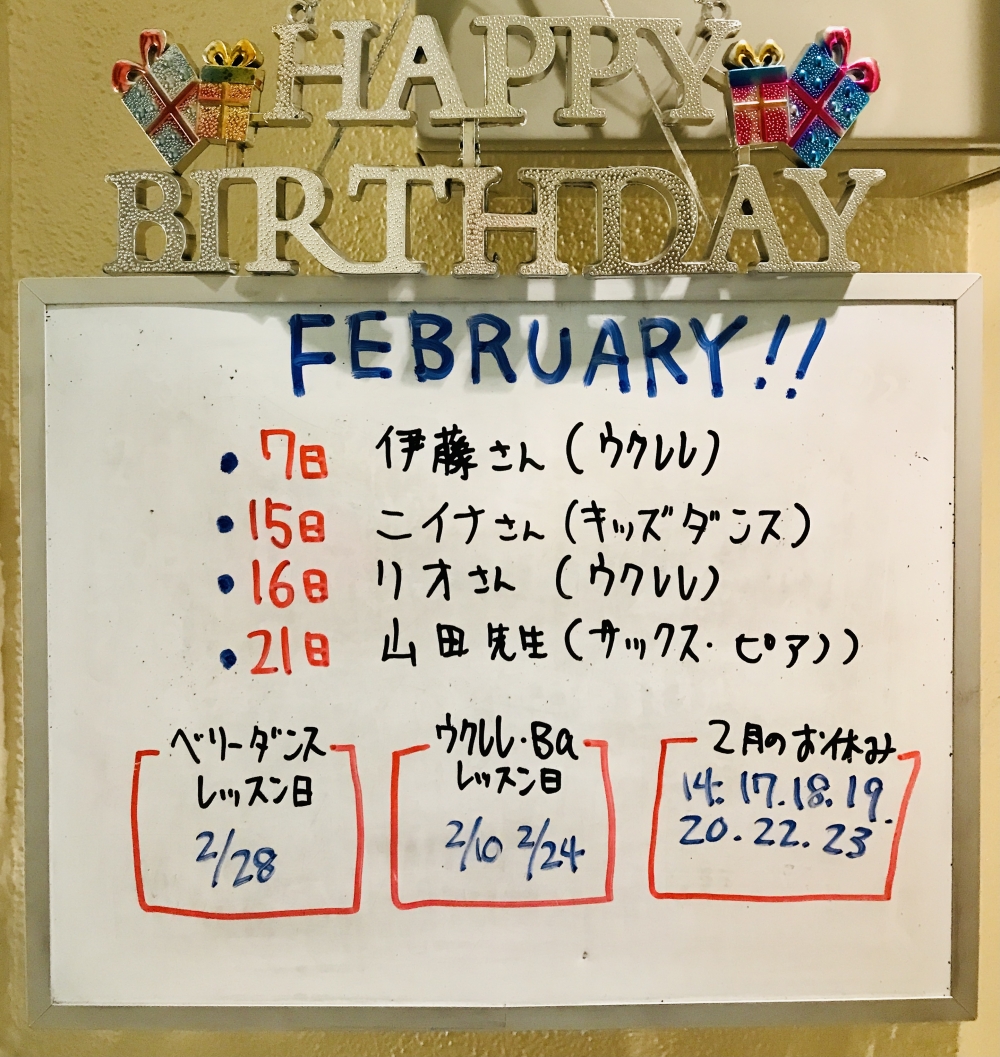 HAPPY
BIRTHDAY
FEBRUARY!!
• 7日 伊藤さん (ウクレレ)
• 15日 ニイナさん (キッズダンス)
• 16日 リオさん (ウクレレ)
• 21日 山田先生 (サックス・ピアノ)
ベリーダンス
レッスン日
2/28
ウクレレ・Ba
レッスン日
2/10 2/24
2月のお休み
14. 17. 18. 19.
20. 22. 23